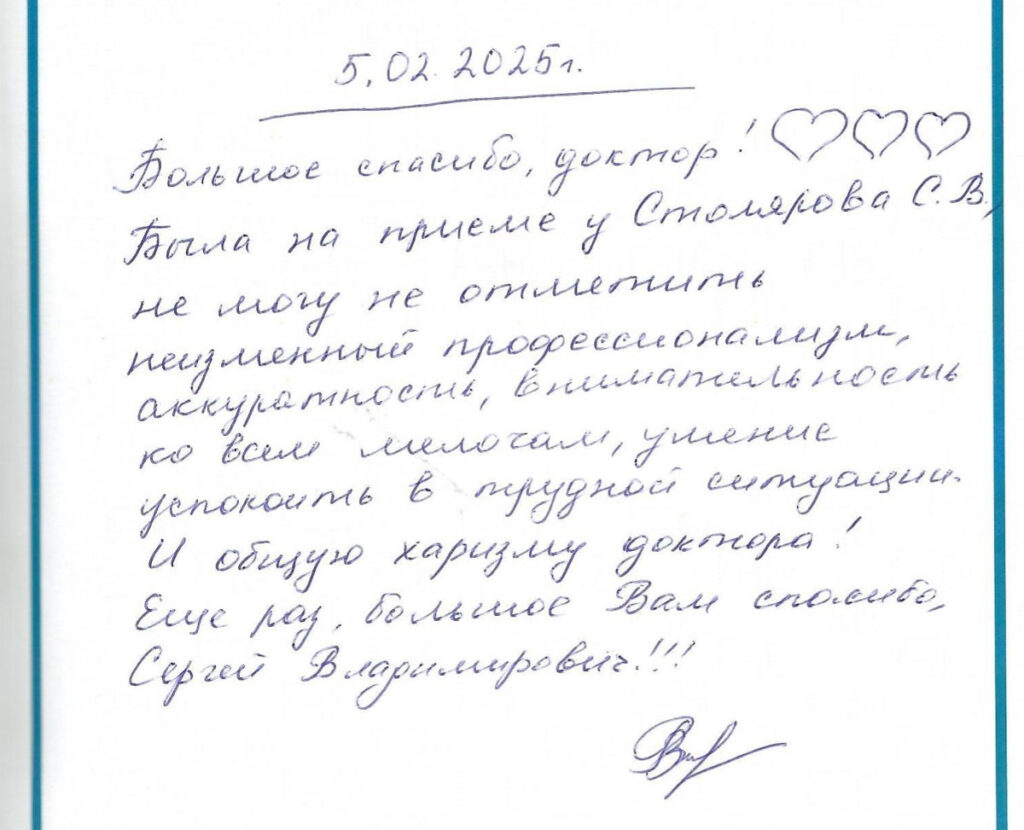 5.02.2025г.
Большое спасибо, доктор!
Была на приеме у Столярова С.В.,
не могу не отметить
неизменный профессионализм,
аккуратность, внимательность
ко всем мелочам, умение
успокоить в трудной ситуации.
И общую харизму доктора!
Еще раз, большое Вам спасибо,
Сергей Владимирович!!!